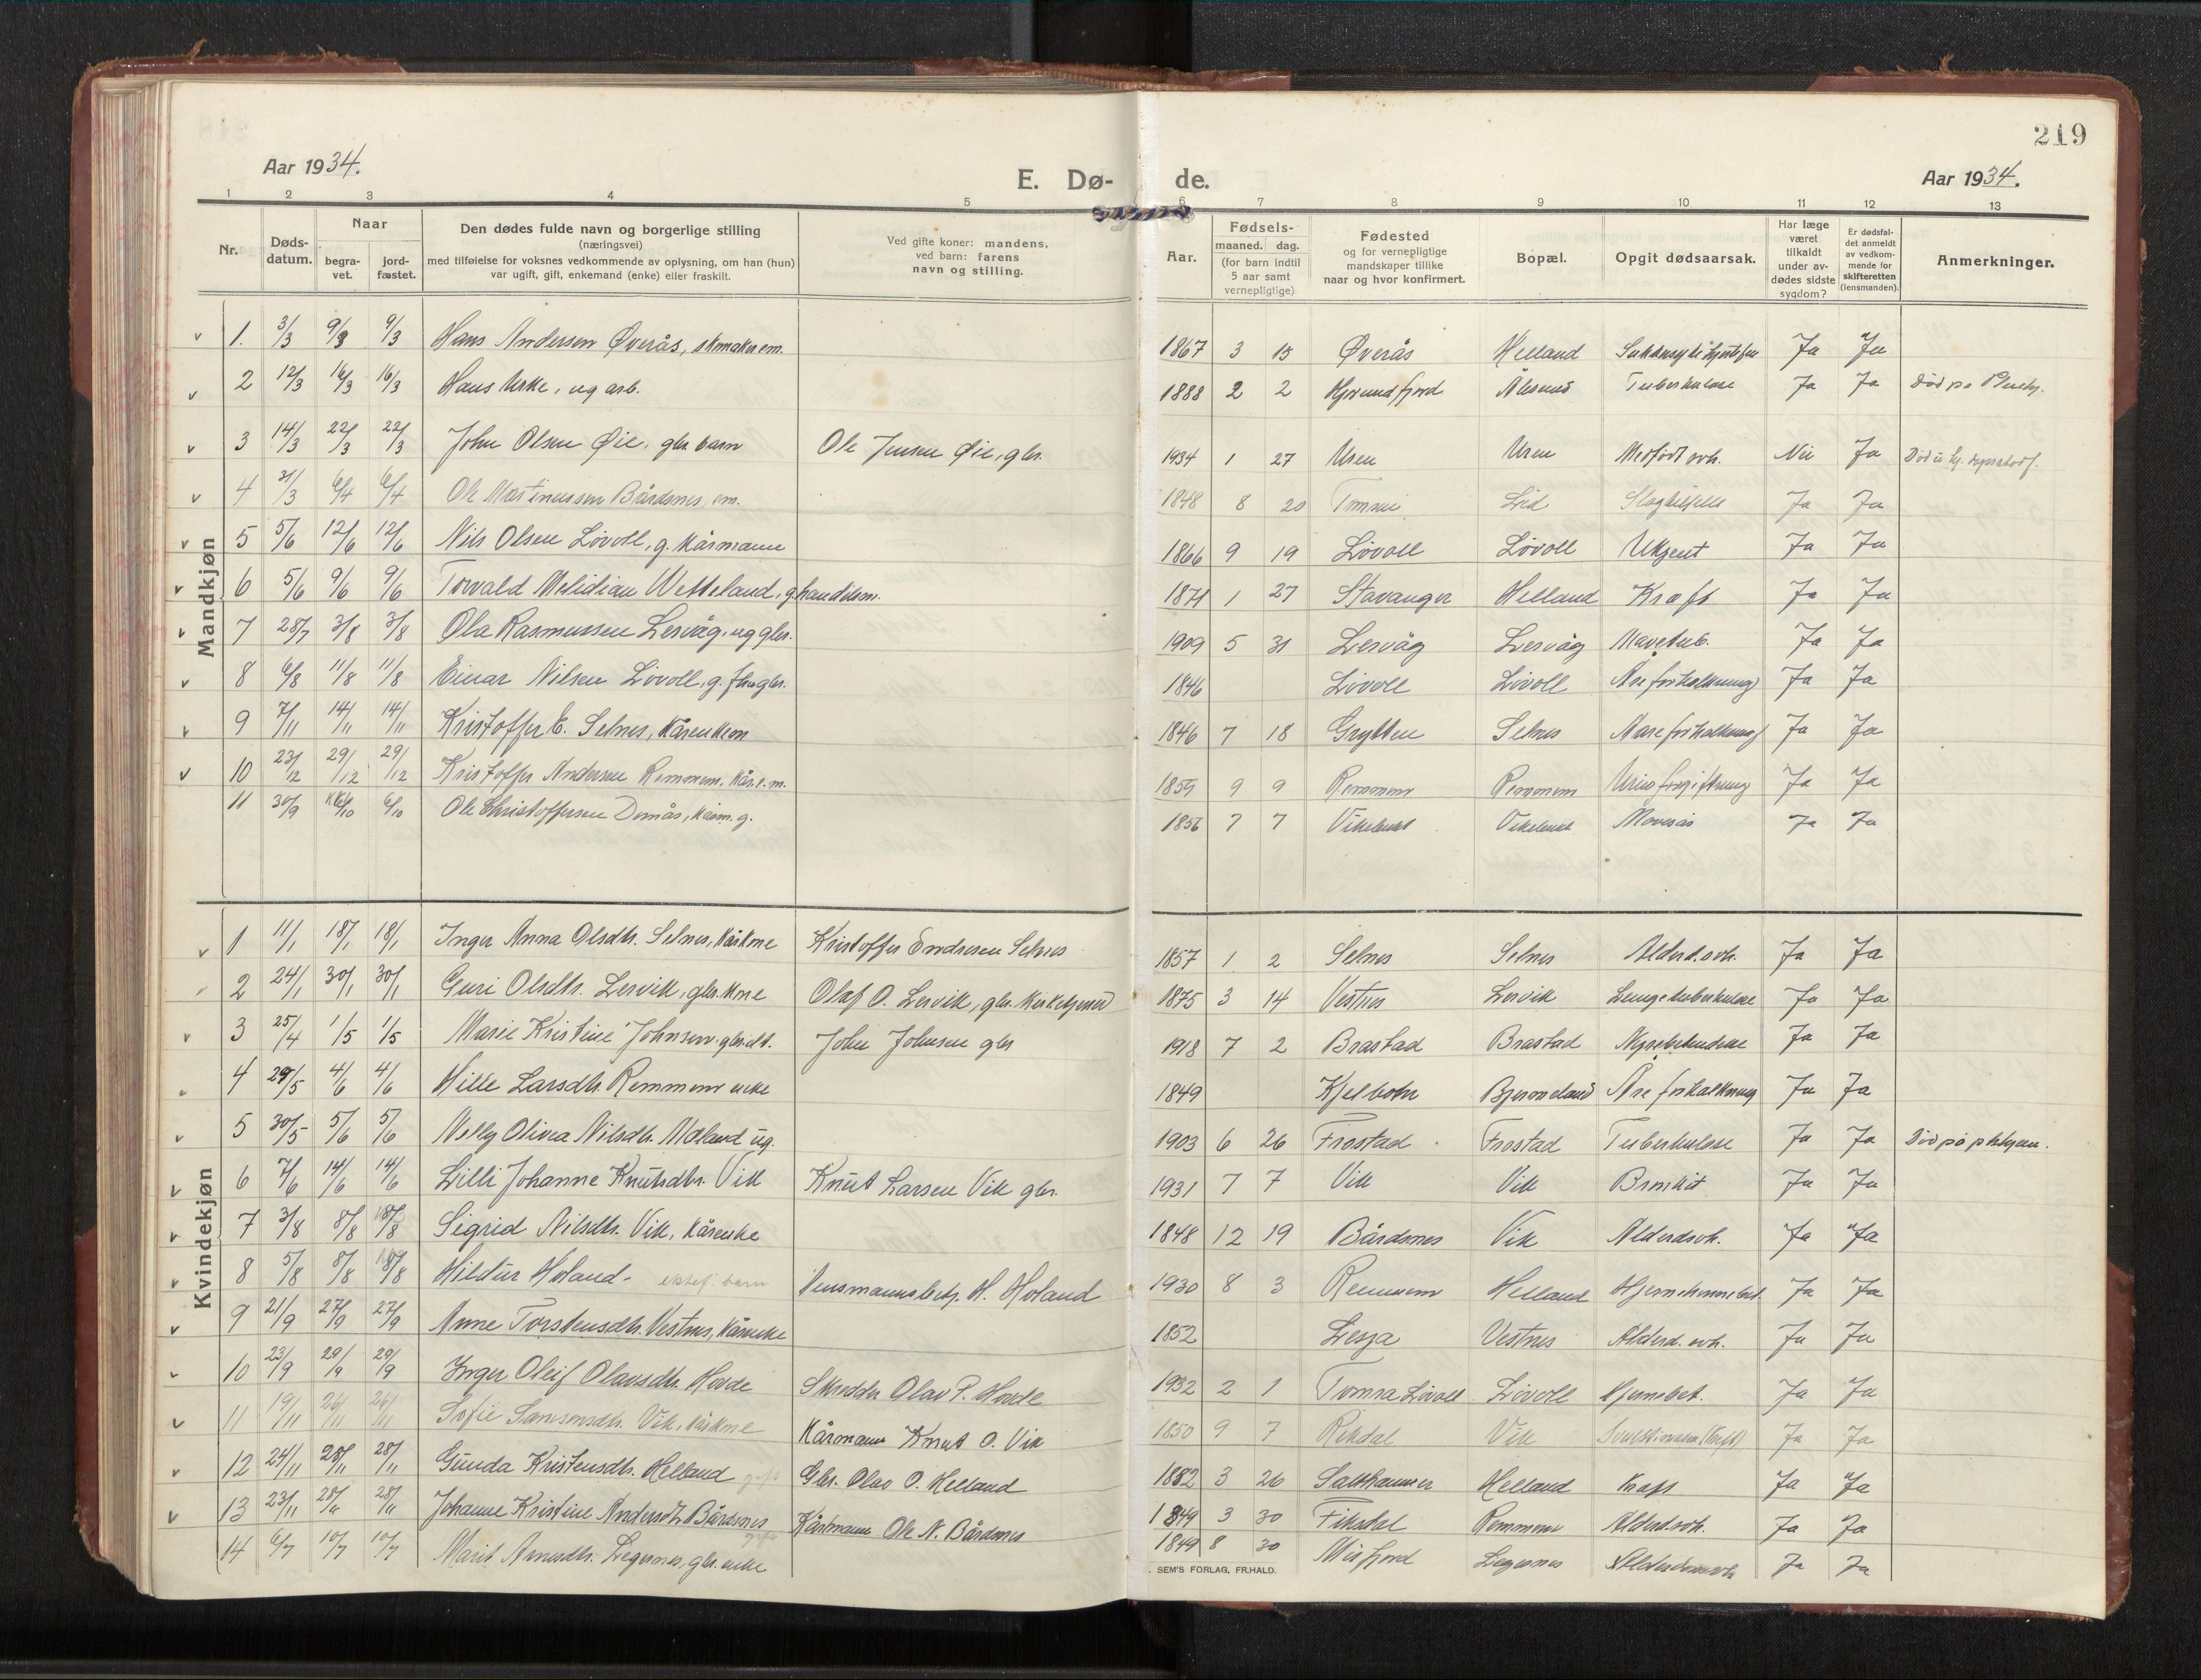 219
Aar 1934.
E. Dø- de.
Aar 1934.
1 2 3 4 5 6 7 8 9 10 11 12 13
Nr.
Døds-
datum.
Naar
begra-
vet.
jord-
fæstet.
Den dødes fulde navn og borgerlige stilling
(næringsvei)
med tilføielse for voksnes vedkommende av oplysning, om han (hun)
var ugift, gift, enkemand (enke) eller fraskilt.
Ved gifte koner: mandens,
ved barn: farens
navn og stilling.
Aar.
Fødsels-
maaned. dag.
(for barn indtil
5 aar samt
vernepligtige)
Fødested
og for vernepligtige
mandskaper tillike
naar og hvor konfirmert.
Bopæl.
Opgit dødsaarsak.
Har læge
været
tilkaldt
under av-
dødes sidste
sygdom?
Er dødsfal-
det anmeldt
av vedkom-
mende for
skifteretten
(lensmanden).
Anmerkninger.
Mandkjøn
1. 3/3 9/3 9/3 Hans Andersen Øverås, skmaker em. 1867 3 15 Øverås Helland Ja Ja
2 12/3 16/3 16/3 Hans Urke, ug arb. 1888 2 2 Hjørundfjord Ålesund Tuberkulose Ja Ja Død på
3 14/3 22/3 22/3 John Olsen Øie, gbr. barn Ole Jensen Øie, gbr. 1934 1 27 Uren Uren Medfødt svh. Nei Ja
4 31/3 6/4 6/4 Ole Martinussen Bårdsnes, em. 1848 8 20 Lid Slagtilfelle Ja Ja
5 5/6 12/6 12/6 Nils Olsen Løvoll, g. kårmann 1866 9 19 Løvoll Løvoll Ukjent Ja Ja
6 5/6 9/6 9/6 Torvald Melidian Wetteland, g. handelsm. 1871 1 27 Stavanger Helland Kræft Ja Ja
7 28/7 3/8 3/8 Ola Rasmussen Lervåg, ug gbr. 1909 5 31 Lervåg Lervåg Mavetub. Ja Ja
8 6/8 11/8 11/8 Einar Nilsen Løvoll, g. 1846 Løvoll Løvoll Åreforkalkning Ja Ja
9 7/11 14/11 14/11 Kristoffer E. Selnes, kårenkem 1846 7 18 Grytten Selnes Aareforkalkning Ja Ja
10 23/12 29/12 29/12 Kristoffer Andersen Remmem, kår.e.m. 1859 9 9 Remmem Remmem Urinforgiftning Ja Ja
11 30/9 6/10 6/10 Ole Christoffersen Domås, kårm. g. 1856 7 7 Vikebukt Vikebukt Ja Ja
Kvindekjøn
1 11/1 18/1 18/1 Inger Anna Olsdtr. Selnes, kårkone Kristoffer Endresen Selnes 1857 1 2 Selnes Selnes Alderd.svh. Ja Ja
2 24/1 30/1 30/1 Guri Olsdtr. Lervik, gbr. kone Olaf O. Lervik, gbr. kirketjener 1875 3 14 Vestnes Lervik Lungetuberkulose Ja Ja
3 25/4 1/5 1/5 Marie Kristine Johnsen gbr.dt. John Johnsen gbr 1918 7 2 Brastad Brastad Ja Ja
4 29/5 4/6 4/6 Hille Larsdtr Remmem enke 1849 Kjelbotn Bjermeland Åreforkalkning Ja Ja
5 30/5 5/6 5/6 Nelly Olivea Nilsdtr. Moland ug. 1903 6 26 Frostad Frostad Tuberkulose Ja Ja Død på plhjem.
6 7/6 14/6 14/6 Lilli Johanne Knutsdtr. Vik Knut Larsen Vik gbr. 1931 7 7 Vik Vik Bronkit Ja Ja
7 3/8 8/8 18/8 Sigrid Nilsdtr. Vik, kårenke 1848 12 19 Bårdsnes Vik Alderdsvh. Ja Ja
8 5/8 8/8 18/8 Hildur Holand - ektef. barn Lensmannsbetj. H. Holand 1930 8 3 Remmem Helland Hjernehinnebet. Ja Ja
9 21/9 27/9 27/9 Anne Torstensdtr. Vestnes, kårenke 1852 Lesja Vestnes Alderd. svh. Ja Ja
10 23/9 29/9 29/9 Inger Oleif Olavsdtr. Hovde Skredder Olav P. Hovde 1932 2 1 Tomra Løvoll Løvoll Hjernebet. Ja Ja
11 19/11 26/11 26/11 Sofie Samsonsdtr. Vik, kårkone Kårmann Knut O. Vik 1850 9 7 Rekdal Vik Ja Ja
12 24/11 28/11 28/11 Gunda Kristensdtr. Helland gift Gbr. Olav O. Helland 1882 3 26 Salthammer Helland Kræft Ja Ja
13 23/11 28/11 28/11 Johanne Kristine Andersdtr Bårdsnes gift Kårmann Ole N. Bårdsnes 1849 3 30 Fiksdal Remmem Alderdsvh. Ja Ja
14 6/7 10/7 10/7 Marit Arnesdtr. Legernes, gbr. enke 1849 8 30 Misfjord Legernes Alderdomssvh Ja Ja
SEM'S FORLAG, FR.HALD.